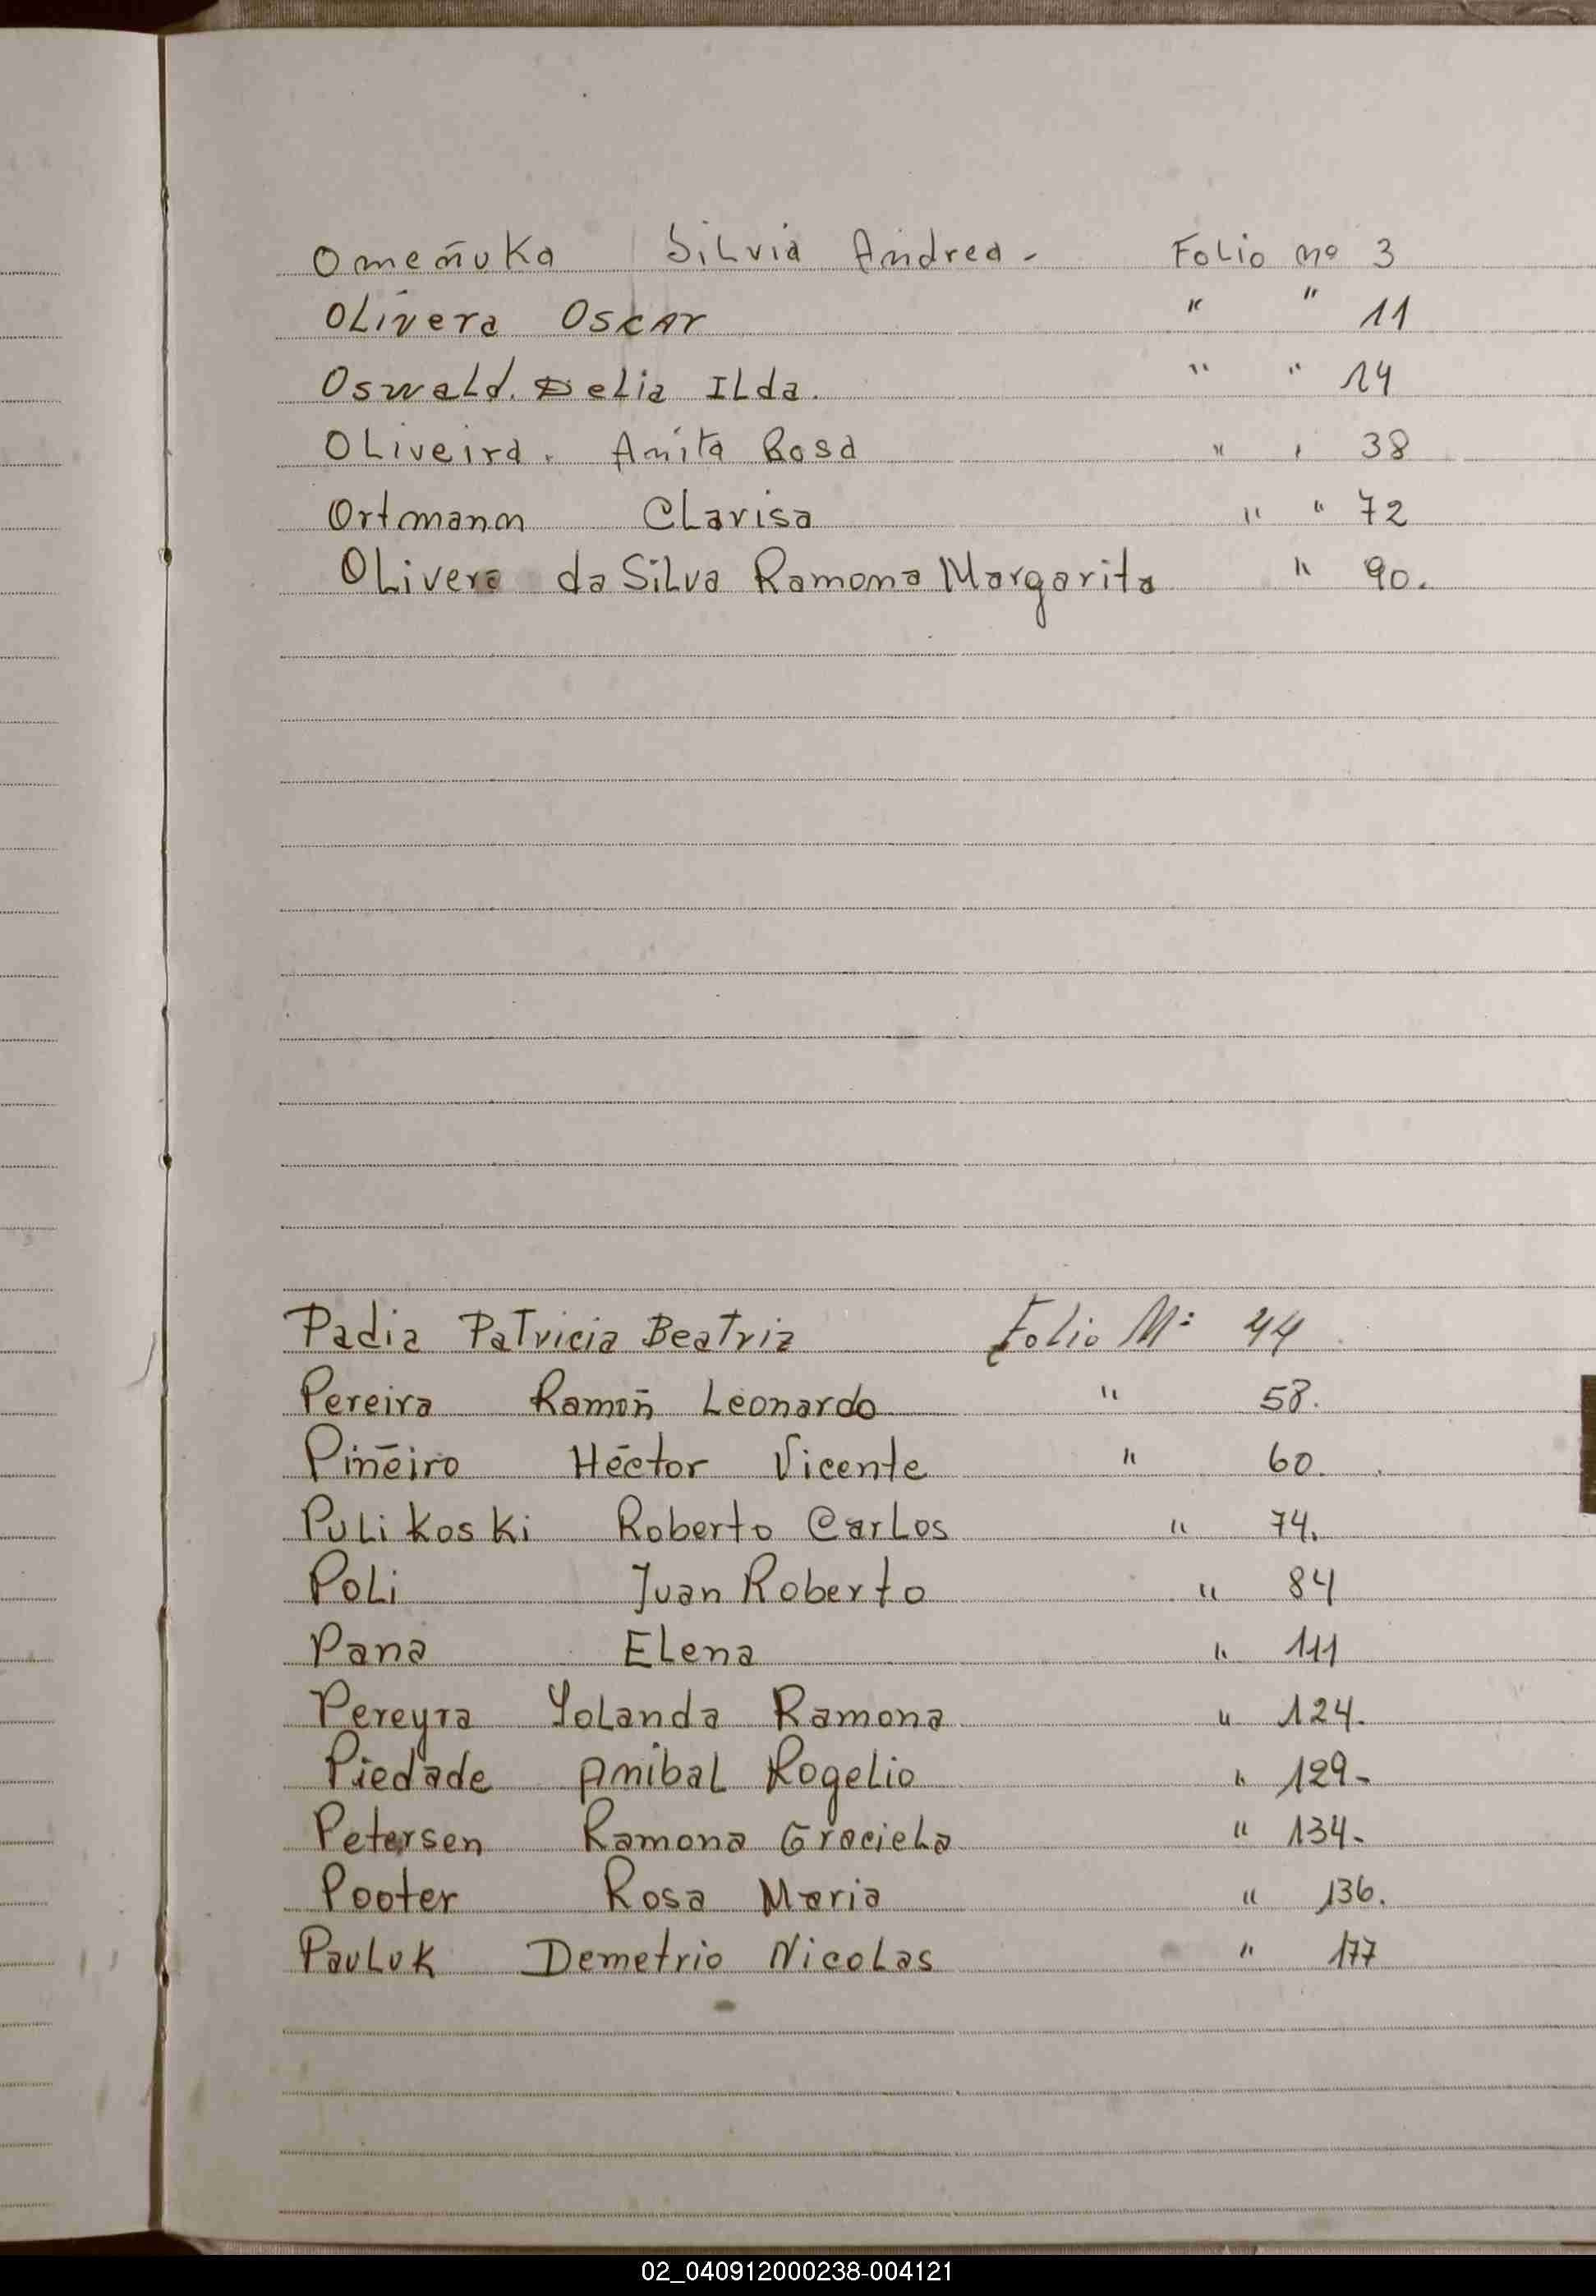 Omeñuka Silvia Andrea - Folio nº 3
Olivera Oscar " " 11
Oswald. Delia Ilda. " " 14
Oliveira. Anita Rosa " " 38
Ortmann Clarisa " " 72
Olivera da Silva Ramona Margarita " 90.
Padia Patricia Beatriz Folio Nº 44
Pereira Ramón Leonardo " 58.
Piñeiro Héctor Vicente " 60.
Pulikoski Roberto Carlos " 74.
Poli Juan Roberto " 84
Pana Elena " 111
Pereyra Yolanda Ramona " 124.
Piedade Anibal Rogelio " 129-
Petersen Ramona Graciela " 134-
Pooter Rosa Maria " 136.
Pauluk Demetrio Nicolas " 177
02_040912000238-004121